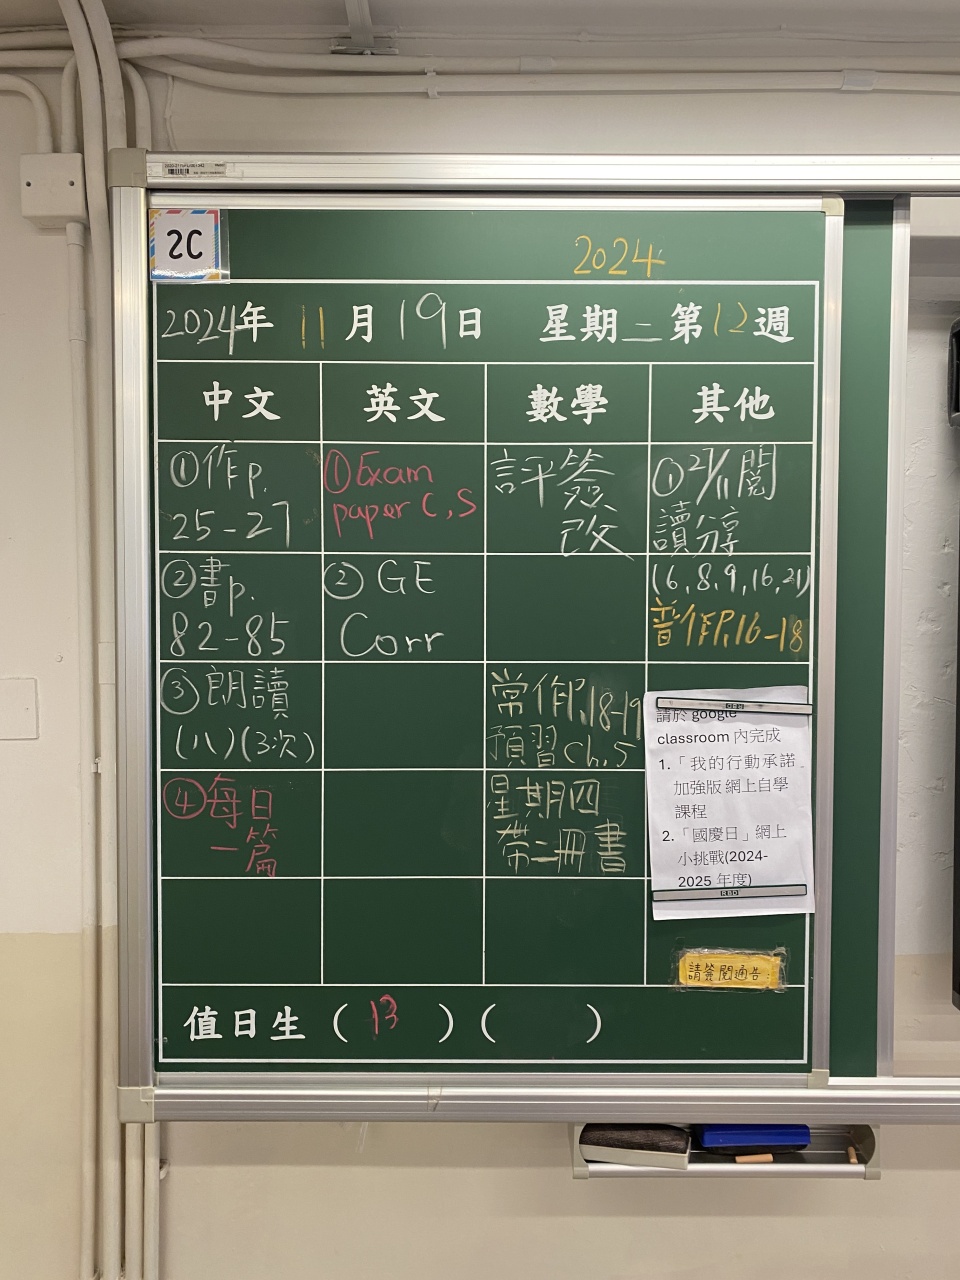 2C
2024
2024年 11月19日 星期二 第12週
中文
英文
數學
其他
①作p.
25-27
①Exam
paper C,S
評簽
改
①27/11閱
讀分享
②書p.
82-85
②GE
Corr
(6,8,9,16,21)
普作P.16-18
③朗讀
(八)(3次)
常作P.18-19
預習Ch.5
④每日
一篇
星期四
帶二冊書
請於 google
classroom 內完成
1.「我的行動承諾
加強版 網上自學
課程
2.「國慶日」網上
小挑戰(2024-
2025 年度)
請簽閱通告:
值日生 (13)( )